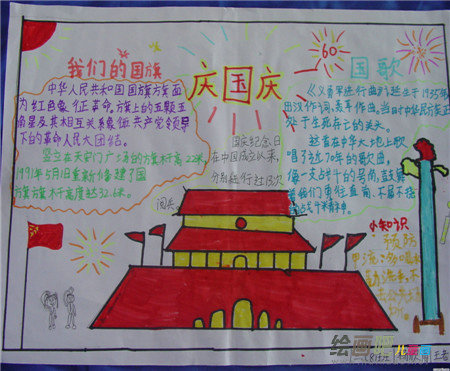 我们的国旗
中华人民共和国国旗旗面
为红色象征革命。旗上的五颗五
角星及其相互关系象征共产党领导
下的革命人民大团结。
竖立在天安门广场的旗杆高22米
1991年5月1日重新修建了国
旗旗杆高度达32.6米。
庆国庆
国庆纪念日
在中国成立以来,
分别进行过
阅兵
60
国歌
《义勇军进行曲》
田汉作词,聂耳作曲,当时中华民族正
处于生死存亡的关头。
这首在中华大地上歌
唱了近70年的歌曲,
像一支战斗的号角,鼓舞
着我们勇往直前、不屈不挠
的战斗精神。
小知识
预防
甲流
绘画
儿童